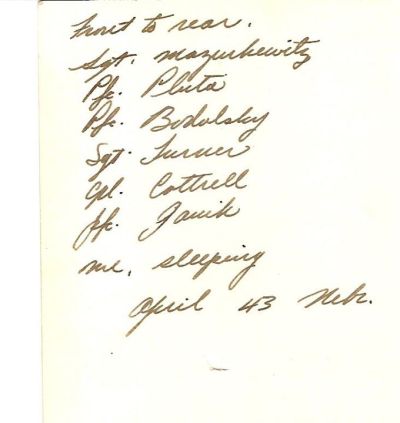 Front to rear.
Sgt. Mazurkewitz
Pfc. Pluta
Pfc. Bodolsky
Sgt. Turner
Cpl. Cottrell
Pfc. Janik
me, sleeping
April 43 Nebr.